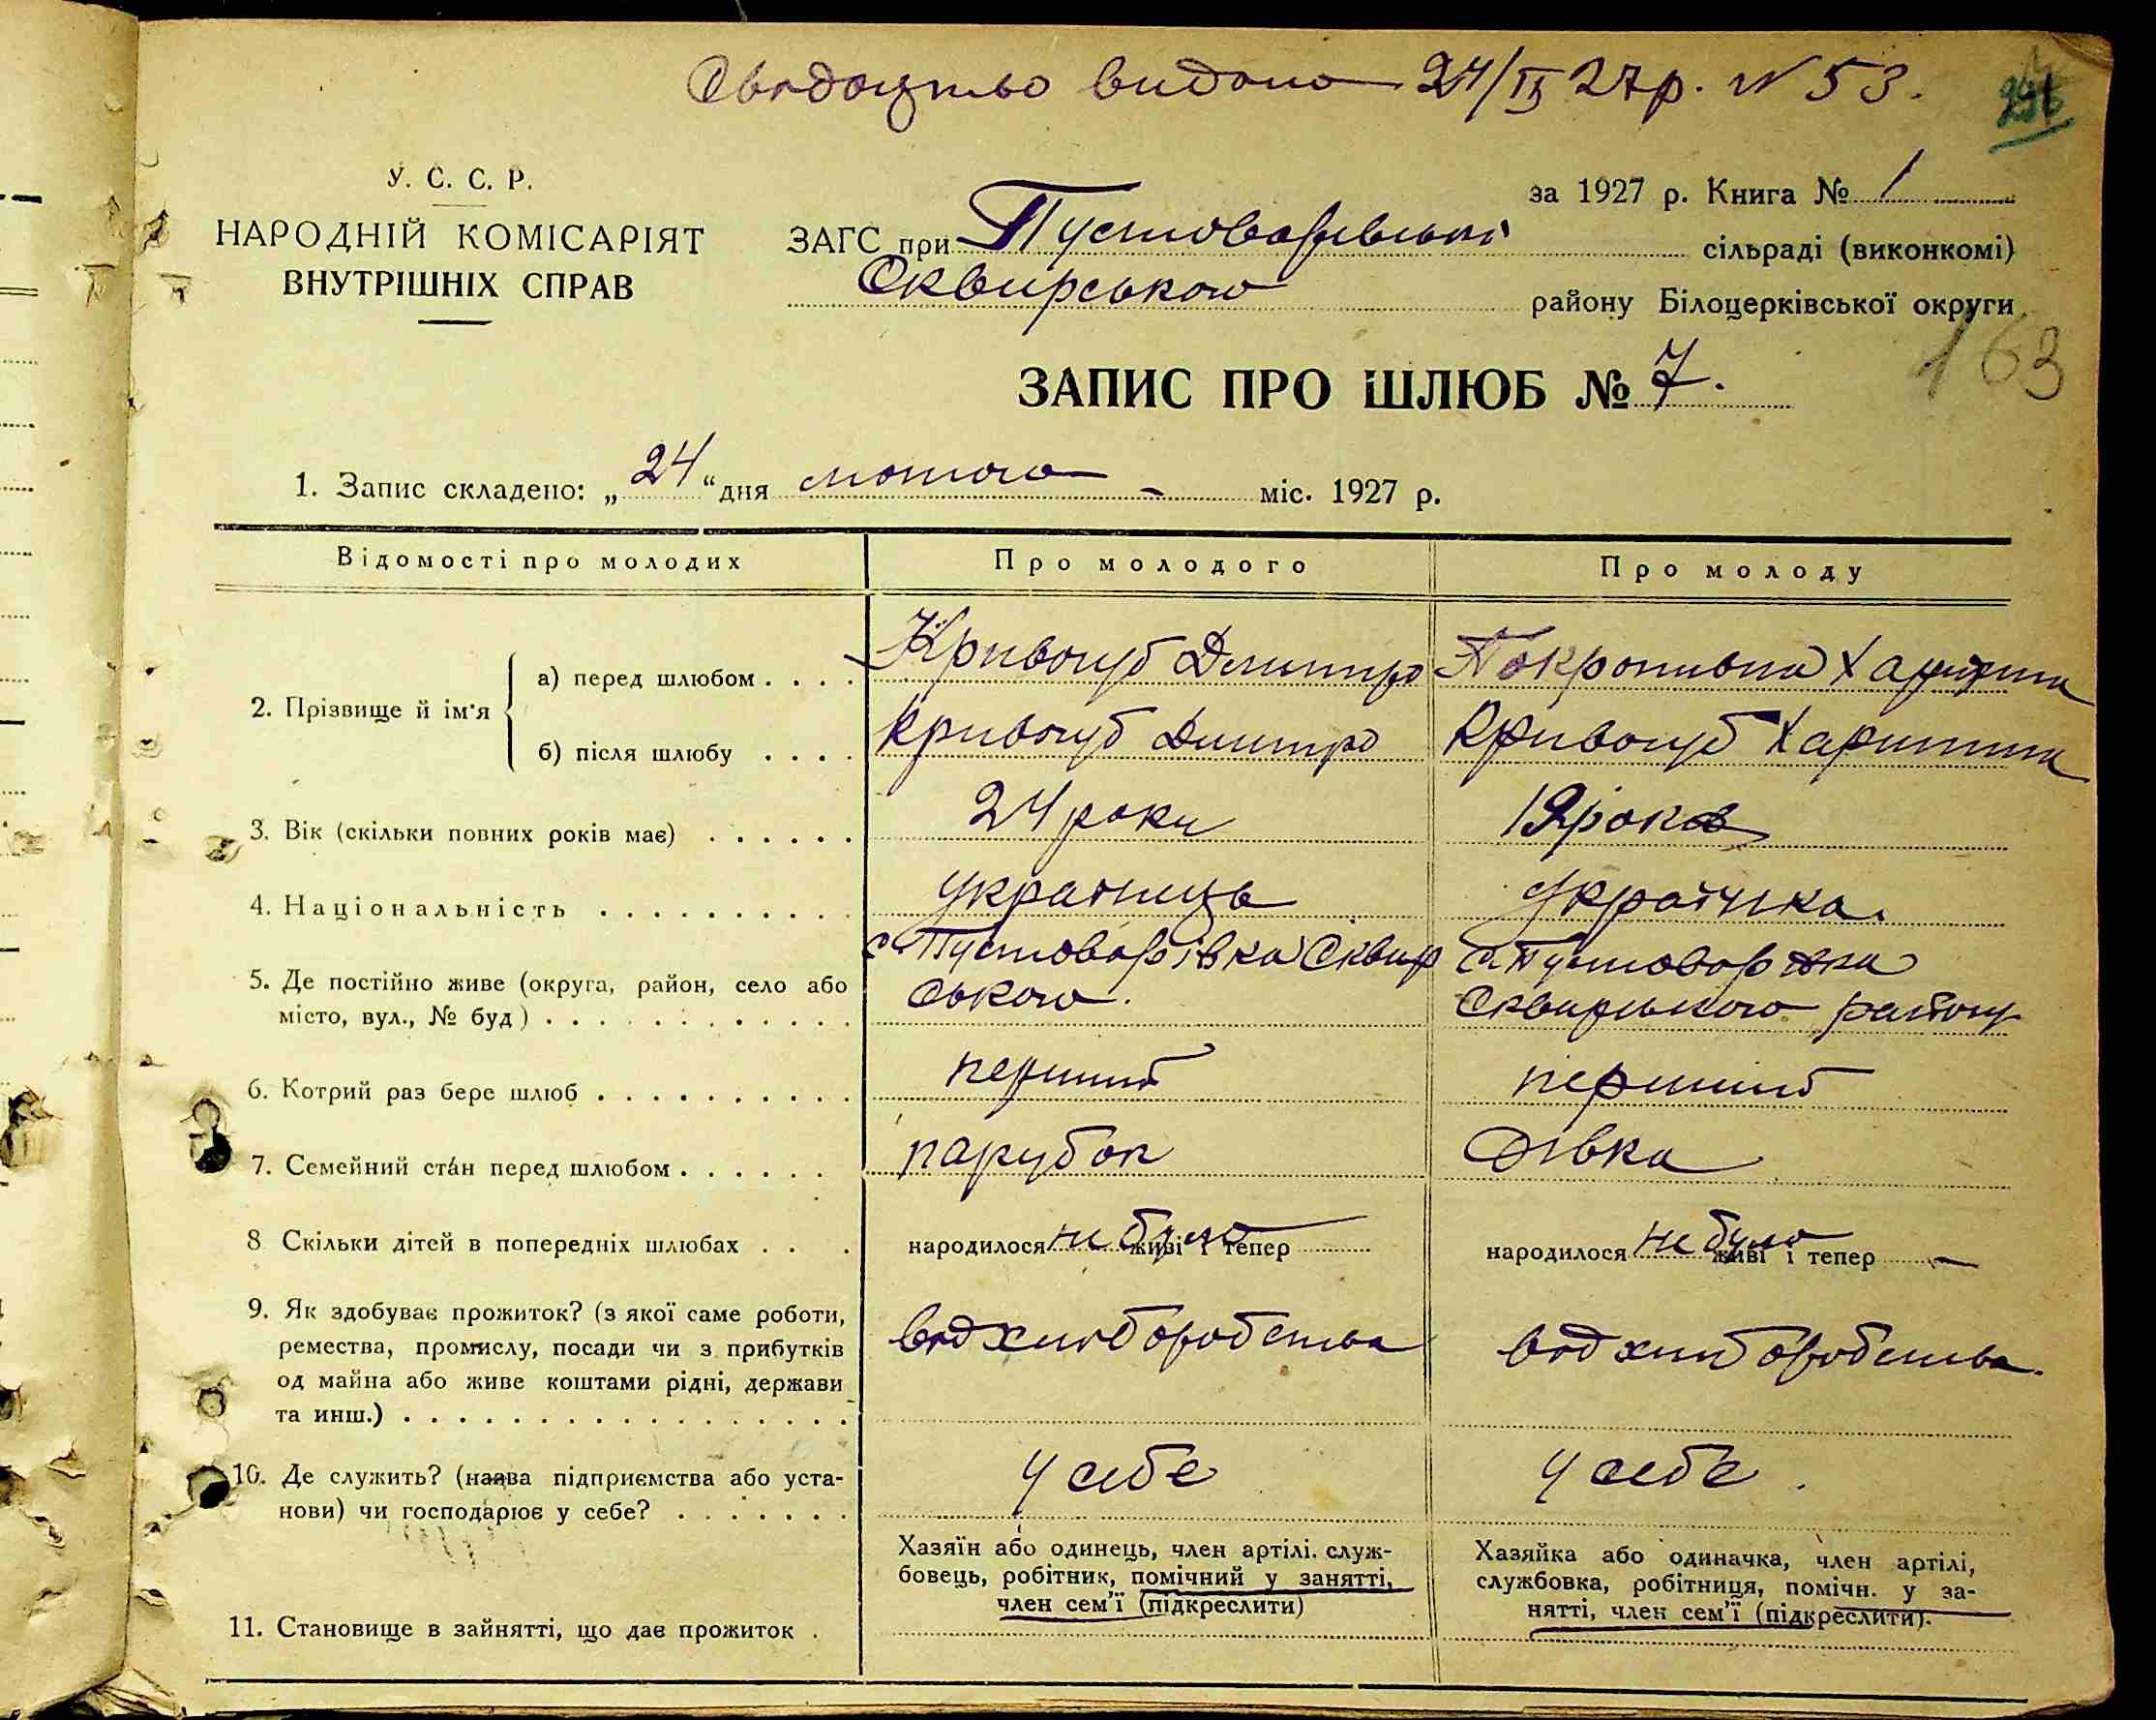 Свідоцтво видано 24/II 27 р. N 53.
У. С. С. Р.
НАРОДНІЙ КОМІСАРІЯТ
ВНУТРІШНІХ СПРАВ
за 1927 р. Книга № 1
ЗАГС при Пустоварівські сільраді (виконкомі)
Сквирського району Білоцерківської округи
163
ЗАПИС ПРО ШЛЮБ № 7.
1. Запис складено: „24“ дня лютого - міс. 1927 р.
Відомості про молодих Про молодого Про молоду
2. Прізвище й ім'я
а) перед шлюбом . . . . Кривогуб Дмитро Покропивна Харитина
б) після шлюбу . . . . Кривогуб Дмитро Кривогуб Харитина
3. Вік (скільки повних років має) . . . . . . 24 роки 19 років
4. Національність . . . . . . . . . . українець українка.
5. Де постійно живе (округа, район, село або с. Пустоварівка Сквир с. Пустоварівка
місто, вул., № буд) . . . . . . . . . . . . ського. Сквирського району
6. Котрий раз бере шлюб . . . . . . . . . . перший перший
7. Семейний ста́н перед шлюбом . . . . . . парубок дівка
8 Скільки дітей в попередніх шлюбах . . . народилося не було живі і тепер народилося не було живі і тепер -
9. Як здобуває прожиток? (з якої саме роботи,
ремества, промислу, посади чи з прибутків від хліборобства від хліборобства.
од майна або живе коштами рідні, держави
та инш.) . . . . . . . . . . . . . . . . .
10. Де служить? (назва підприємства або уста- у себе у себе.
нови) чи господарює у себе? . . . . . . .
Хазяїн або одинець, член артілі. служ-
бовець, робітник, помічний у занятті,
член сем'ї (підкреслити)
Хазяйка або одиначка, член артілі,
службовка, робітниця, помічн. у за-
нятті, член сем'ї (підкреслити).
11. Становище в зайнятті, що дає прожиток .